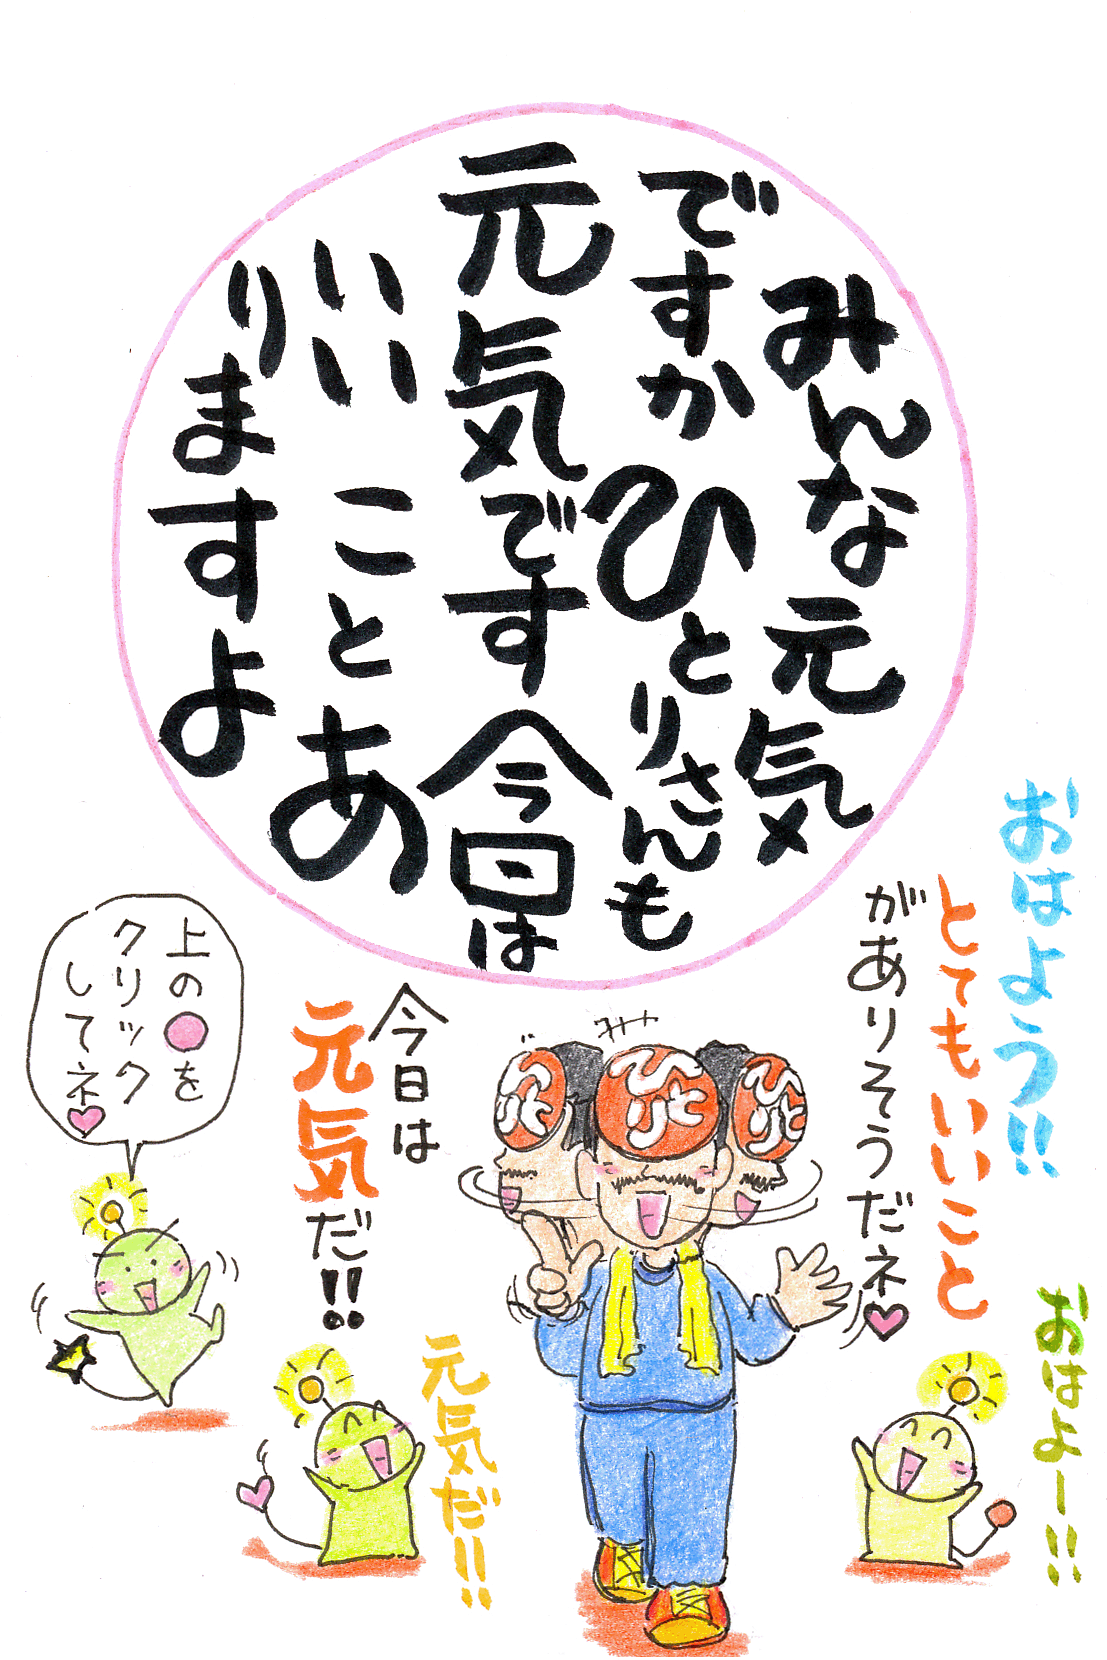 みんな元気
ですかひとりさんも
元気です今日は
いいことあ
りますよ
おはよう!!
とてもいいこと
がありそうだネ♥
おはよー!!
今日は
元気だ!!
元気だ!!
上の●を
クリック
してネ♥
ひとり